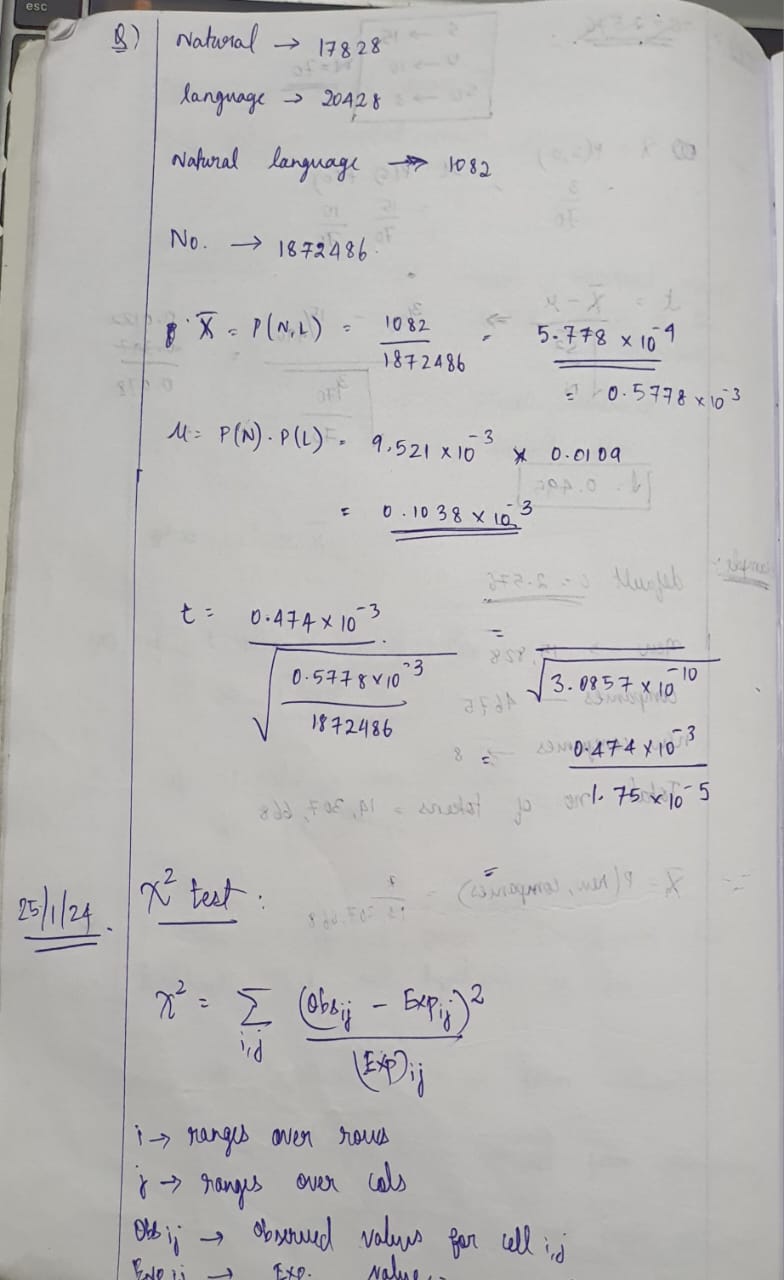 esc
Q) Natural → 17828
language → 20428
Natural language → 1082
No. → 1872486.
X̄ = P(N,L) = 1082 / 1872486 = 5.778 × 10⁻⁴
= 0.5778 × 10⁻³
μ = P(N) · P(L) = 9.521 × 10⁻³ × 0.0109
= 0.1038 × 10⁻³
t = 0.474 × 10⁻³ / √(0.5778 × 10⁻³ / 1872486) = / √(3.0857 × 10⁻¹⁰)
= 0.474 × 10⁻³ / 1.75 × 10⁻⁵
=
25/1/24. χ² test :
χ² = Σ i,j (Obs ij − Exp ij)² / (Exp) ij
i → ranges over rows
j → ranges over cols
Obs ij → observed values for cell i,j
Exp ij → Exp. value